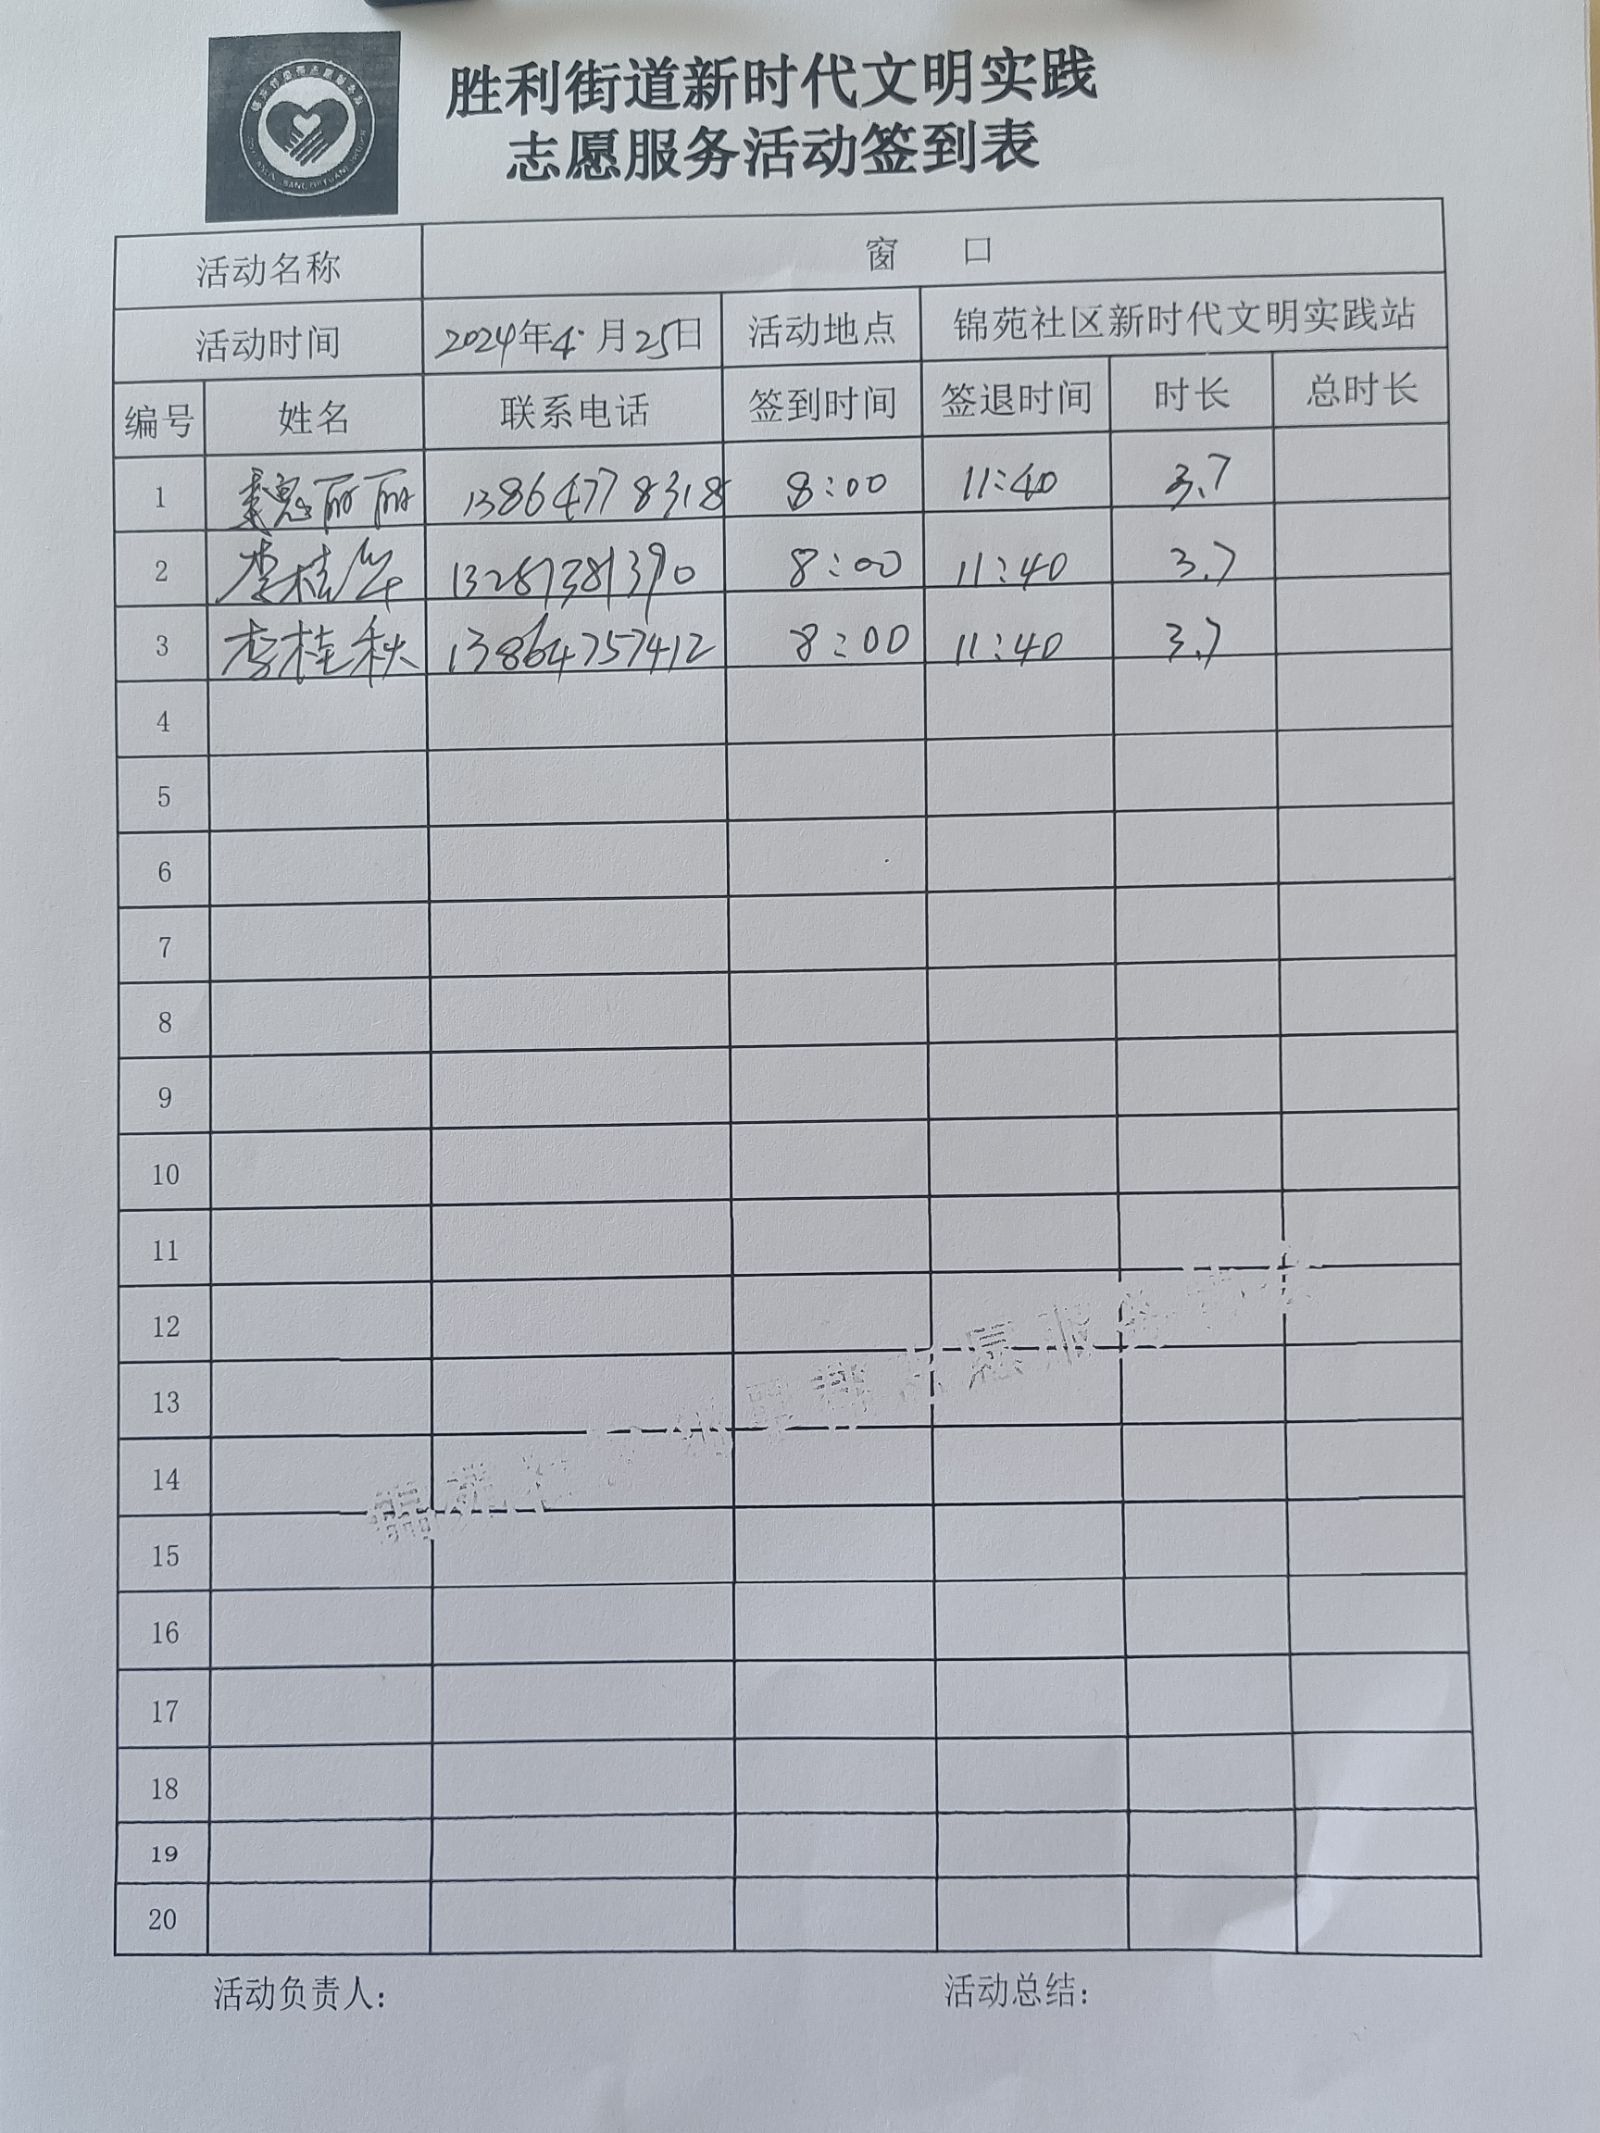 胜利街道新时代文明实践
志愿服务活动签到表
活动名称 窗 口
活动时间 2024年4·月25日 活动地点 锦苑社区新时代文明实践站
编号 姓名 联系电话 签到时间 签退时间 时长 总时长
1 魏丽丽 13864778318 8:00 11:40 3.7
2 李桂华 13287381390 8:00 11:40 3.7
3 李桂秋 13864757412 8:00 11:40 3.7
4
5
6
7
8
9
10
11
12
13
14
15
16
17
18
19
20
活动负责人: 活动总结: